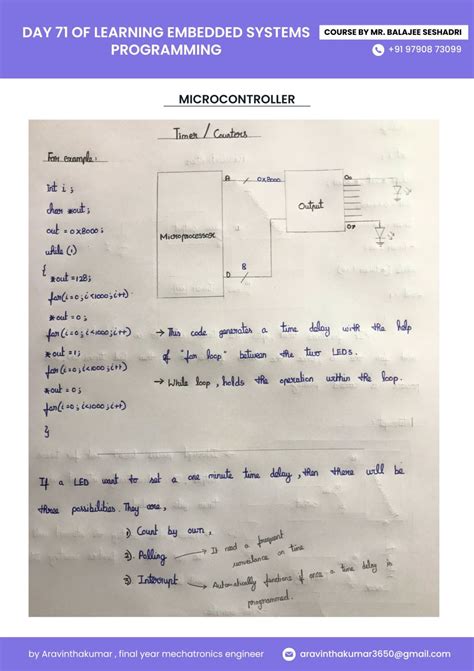 DAY 71 OF LEARNING EMBEDDED SYSTEMS PROGRAMMING
COURSE BY MR. BALAJEE SESHADRI
+91 97908 73099
MICROCONTROLLER
Timer / Counters
For example:
int i ;
char *out ;
out = 0x8000 ;
while (1)
{
*out = 128;
for(i=0; i<1000; i++)
*out = 0 ;
for(i=0; i<1000; i++)
*out = 1;
for(i=0; i<1000; i++)
*out = 0;
for(i=0; i<1000; i++)
}
Microprocessor
A
0x8000
D
8
Output
O0
O7
→ This code generates a time delay with the help
of "for loop" between the two LEDs.
→ While loop, holds the operation within the loop.
If a LED want to set a one minute time delay, then there will be
three possibilities. They are,
1) Count by own,
2) Polling → It need a frequent
surveilance on time
3) Interrupt → Automatically functions if once a time delay is
programmed.
by Aravinthakumar , final year mechatronics engineer
aravinthakumar3650@gmail.com